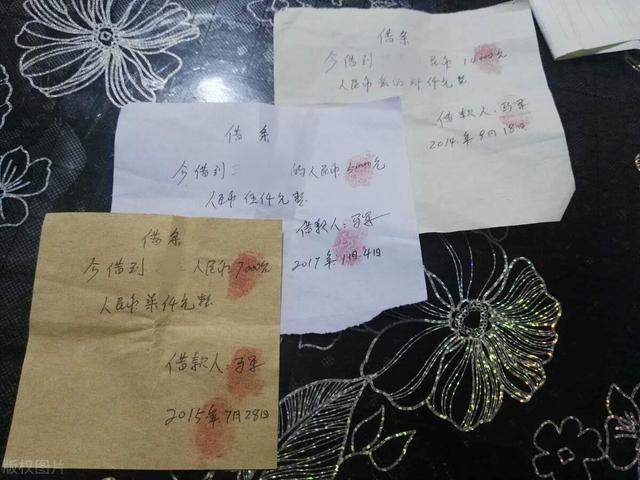 借条
今借到 人民币7000元
人民币柒仟元整
借款人:
2015年7月28日
借条
今借到 的人民币5000元
人民币伍仟元整
借款人:
2017年1月4日
借条
今借到 民币
人民币 仟元整
借款人:
2014年9月18日
版权图片